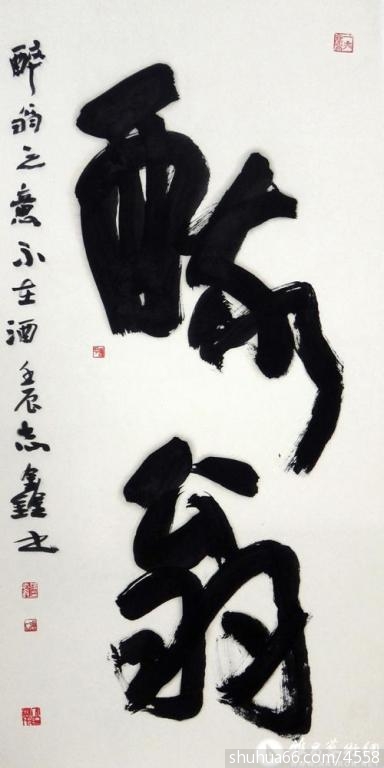 醉翁
醉翁之意不在酒 壬辰志鑫书
shuhua66.com/4558